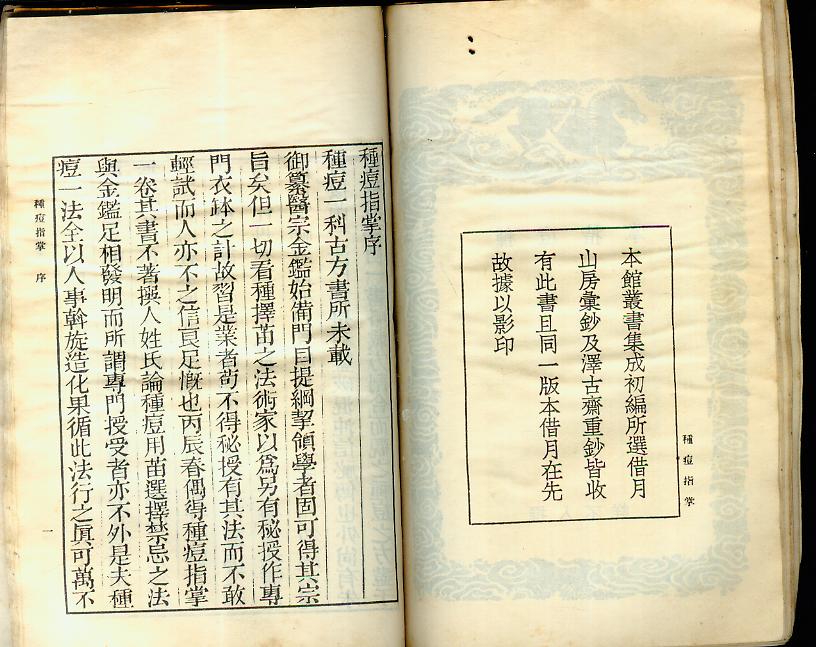 種痘指掌
本館叢書集成初編所選借月
山房彙鈔及澤古齋重鈔皆收
有此書且同一版本借月在先
故據以影印
種痘指掌序
種痘一科古方書所未載
御纂醫宗金鑑始備門目提綱挈領學者固可得其宗
旨矣但一切看種擇苗之法術家以爲另有秘授作專
門衣鉢之計故習是業者苟不得秘授有其法而不敢
輕試而人亦不之信良足慨也丙辰春偶得種痘指掌
一卷其書不著撰人姓氏論種痘用苗選擇禁忌之法
與金鑑足相發明而所謂專門授受者亦不外是夫種
痘一法全以人事斡旋造化果循此法行之眞可萬不
種痘指掌 序
一